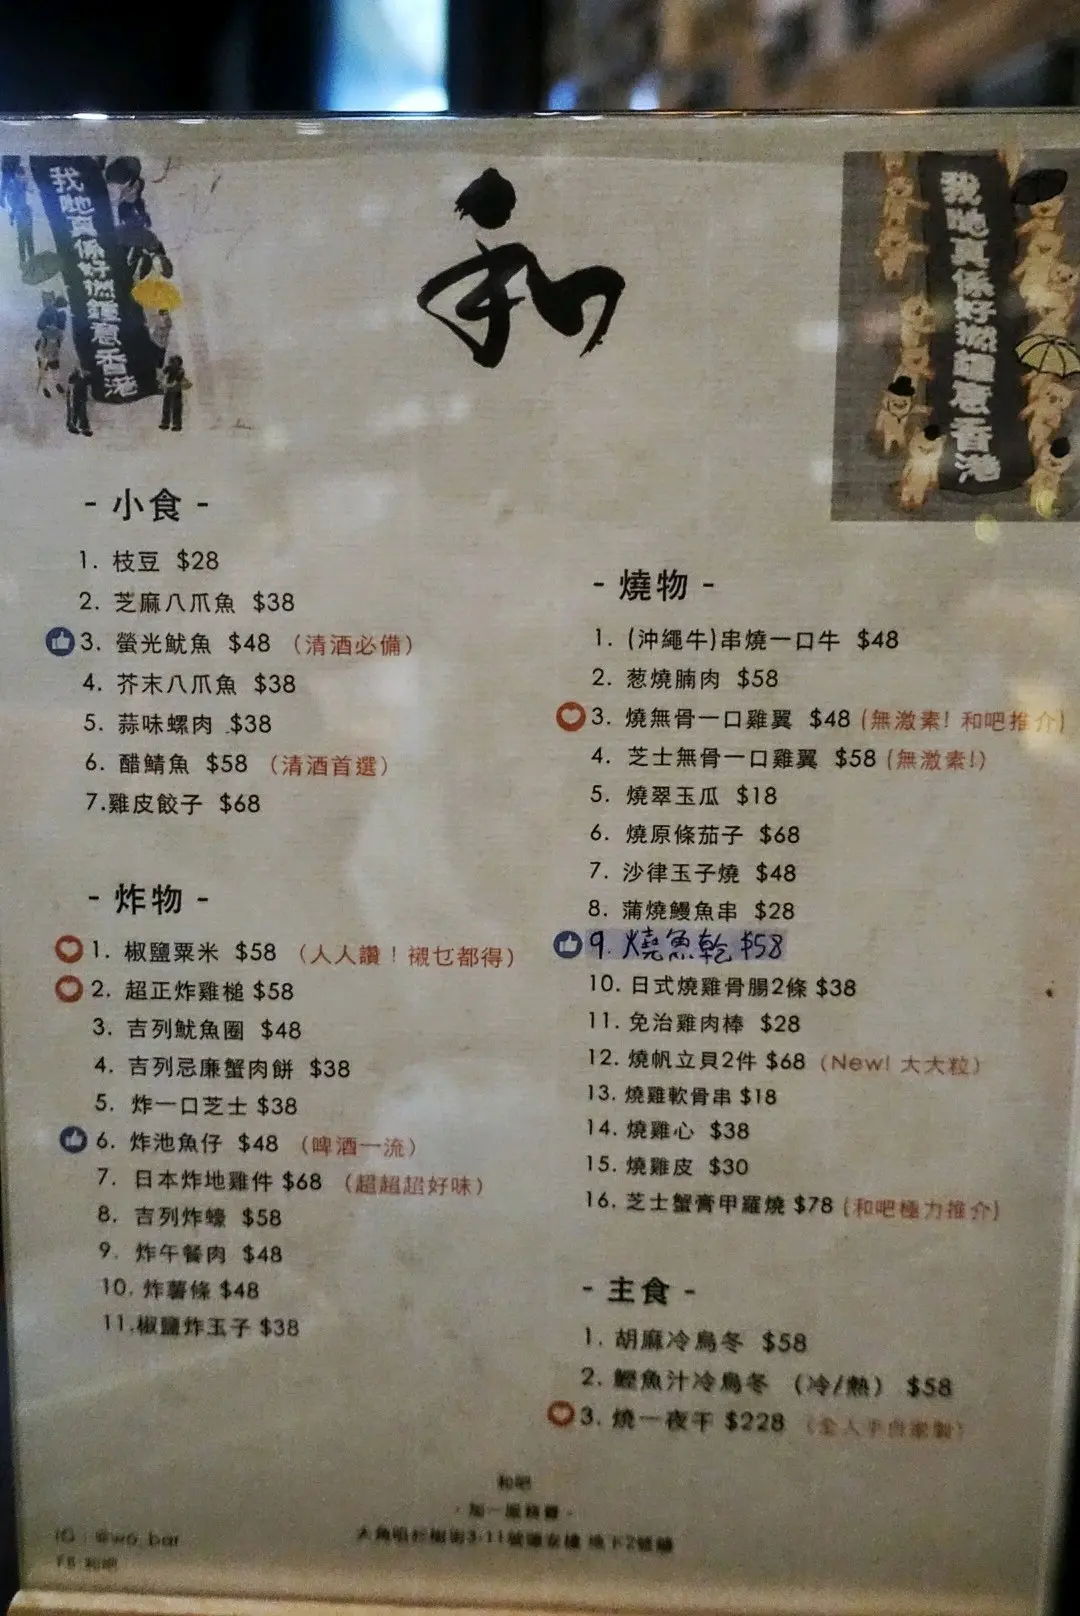 我哋真係好撚鍾意香港
和
我哋真係好撚鍾意香港
- 小食 -
1. 枝豆 $28
2. 芝麻八爪魚 $38
3. 螢光魷魚 $48 （清酒必備）
4. 芥末八爪魚 $38
5. 蒜味螺肉 $38
6. 醋鯖魚 $58 （清酒首選）
7.雞皮餃子 $68
- 炸物 -
1. 椒鹽粟米 $58 （人人讚！襯乜都得）
2. 超正炸雞槌 $58
3. 吉列魷魚圈 $48
4. 吉列忌廉蟹肉餅 $38
5. 炸一口芝士 $38
6. 炸池魚仔 $48 （啤酒一流）
7. 日本炸地雞件 $68 （超超超好味）
8. 吉列炸蠔 $58
9. 炸午餐肉 $48
10. 炸薯條 $48
11.椒鹽炸玉子 $38
- 燒物 -
1. (沖繩牛)串燒一口牛 $48
2. 葱燒腩肉 $58
3. 燒無骨一口雞翼 $48 (無激素! 和吧推介)
4. 芝士無骨一口雞翼 $58 (無激素!)
5. 燒翠玉瓜 $18
6. 燒原條茄子 $68
7. 沙律玉子燒 $48
8. 蒲燒鰻魚串 $28
9. 燒魚乾 $58
10. 日式燒雞骨腸2條 $38
11. 免治雞肉棒 $28
12. 燒帆立貝2件 $68 (New! 大大粒)
13. 燒雞軟骨串 $18
14. 燒雞心 $38
15. 燒雞皮 $30
16. 芝士蟹膏甲羅燒 $78 (和吧極力推介)
- 主食 -
1. 胡麻冷烏冬 $58
2. 鰹魚汁冷烏冬 （冷/熱） $58
3. 燒一夜干 $228 （全人手自家製）
和吧
- 加一服務費 -
大角咀杉樹街3-11號 地下2號舖
IG : @wo_bar
FB 和吧